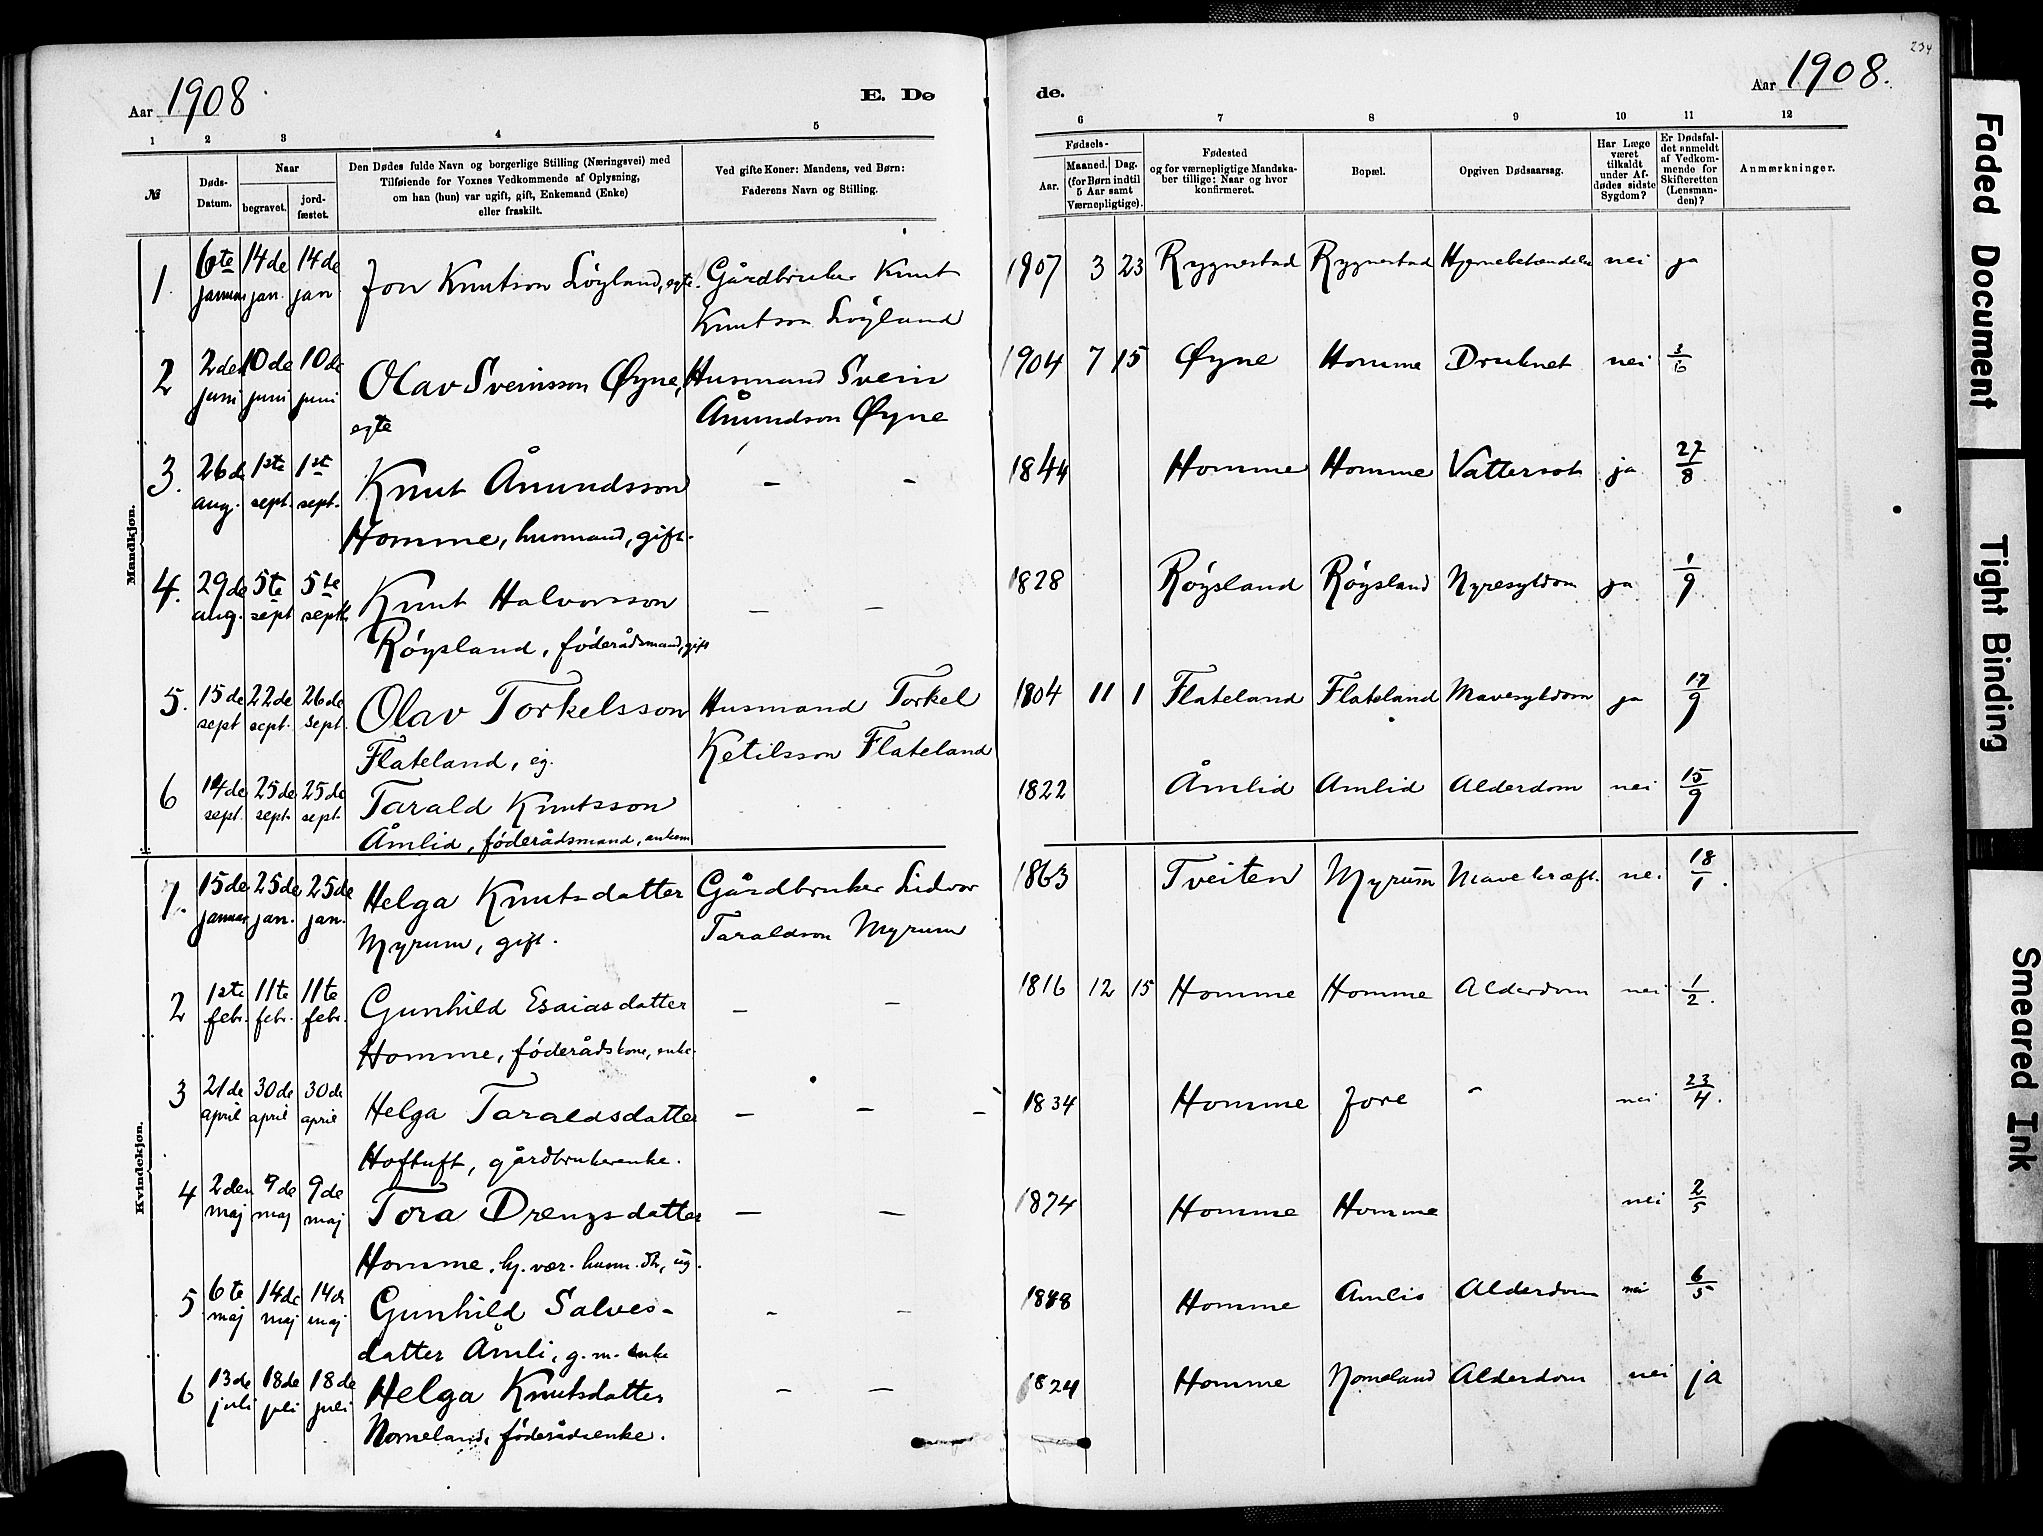 234
Aar 1908
E. Dø
de.
Aar 1908.
1 2 3 4 5
6 7 8 9 10 11 12
№
Døds-Datum.
Naar
begravet.
jord-fæstet.
Den Dødes fulde Navn og borgerlige Stilling (Næringsvei) med
Tilføiende for Voxnes Vedkommende af Oplysning,
om han (hun) var ugift, gift, Enkemand (Enke)
eller fraskilt.
Ved gifte Koner: Mandens, ved Børn:
Faderens Navn og Stilling.
Fødsels-
Aar.
Maaned. Dag.
(for Børn indtil
5 Aar samt
Værnepligtige).
Fødested
og for værnepligtige Mandska-
ber tillige: Naar og hvor
konfirmeret.
Bopæl.
Opgiven Dødsaarsag.
Har Læge
været
tilkaldt
under Af-
dødes sidste
Sygdom?
Er Dødsfal-
det anmeldt
af Vedkom-
mende for
Skifteretten
(Lensman-
den)?
Anmærkninger.
Mandkjøn.
1 6te 14de 14de Jon Knutson Löyland, egte. Gårdbruker Knut 1907 3 23 Rygnestad Rygnestad Hjernebetændelse nei ja
januar jan. jan Knutson Löyland
2 2den 10de 10de Olav Sveinsson Øyne, Husmand Svein 1904 7 15 Øyne Homme Druknet nei 3/6
juni juni juni egte Ånundson Øyne
3. 26de 1ste 1ste Knut Ånundsson – – 1844 Homme Homme Vattersot ja 27/8
aug. sept. sept. Homme, husmand, gift.
4. 29de 5te 5te Knut Halvorsson – – 1828 Röysland Röysland Nyresykdom ja 1/9
aug. sept septb Röysland, föderådsmand, gift
5. 15de 22de 26de Olav Torkelsson Husmand Torkel 1804 11 1 Flateland Flateland Mavesykdom ja 17/9
sept sept. sept. Flateland, eg. Ketilsson Flateland
6 14de 25de 25de Tarald Knutsson 1822 Åmlid Amlid Alderdom nei 15/9
sept. sept. sept. Åmlid, föderådsmand, enkem
Kvindekjøn.
1. 15de 25de 25de Helga Knutsdatter Gårdbruker Lidvor 1863 Tveiten Myrum Mavekræft. nei 18/1.
januar jan. jan. Myrum, gift. Taraldson Myrum
2 1ste 11te 11te Gunhild Esaiasdatter – – 1816 12 15 Homme Homme Alderdom nei 1/2.
febr. febr. febr. Homme, föderådskone, enke.
3 21de 30de 30de Helga Taraldsdatter – – – 1834 Homme Jore – nei 23/4.
april april april Hoftuft, gårdbrukerenke.
4 2den 9de 9de Tora Drengsdatter – – 1874 Homme Homme nei 2/5
maj maj maj Homme, hj. vær. husm. dtr, ug.
5 6te 14de 14de Gunhild Salves- – – Homme Amlid Alderdom nei 6/5
maj maj maj datter Åmli, g.m. enke
6 13de 18de 18de Helga Knutsdatter – – 1824 Homme Nomeland Alderdom nei ja
juli juli juli Nomeland, föderådsenke.
Faded Document
Tight Binding
Smeared Ink